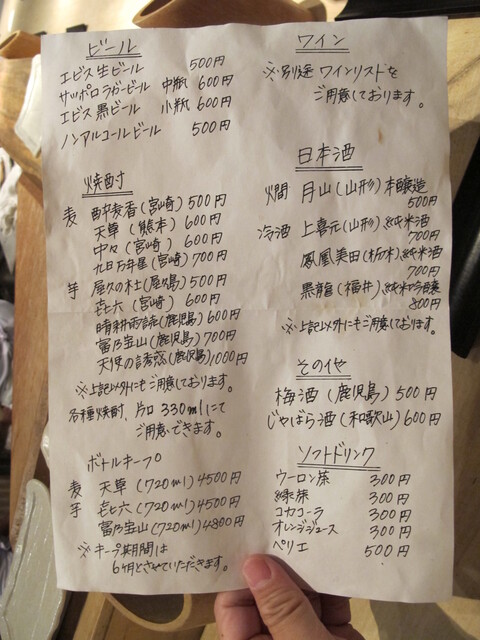 ビール
エビス生ビール 500円
サッポロラガービール 中瓶 600円
エビス黒ビール 小瓶 600円
ノンアルコールビール 500円
焼酎
麦 酔麦香(宮崎) 500円
天草(熊本) 600円
中々(宮崎) 600円
九日万年星(宮崎) 700円
芋 屋久の杜(屋久島) 500円
㐂六(宮崎) 600円
晴耕雨読(鹿児島) 600円
富乃宝山(鹿児島) 700円
天使の誘惑(鹿児島) 1000円
※上記以外にもご用意しております。
各種焼酎、片口330mlにて
ご用意できます。
ボトルキープ
麦 天草(720ml) 4500円
芋 㐂六(720ml) 4500円
富乃宝山(720ml) 4800円
※キープ期間は
6ヶ月とさせていただきます。
ワイン
※別途ワインリストを
ご用意しております。
日本酒
燗 月山(山形)本醸造
500円
冷酒 上喜元(山形)純米酒
700円
鳳凰美田(栃木)純米酒
700円
黒龍(福井)純米吟醸
800円
※上記以外にもご用意しております。
その他
梅酒(鹿児島) 500円
じゃばら酒(和歌山) 600円
ソフトドリンク
ウーロン茶 300円
緑茶 300円
コカコーラ 300円
オレンジジュース 300円
ペリエ 500円